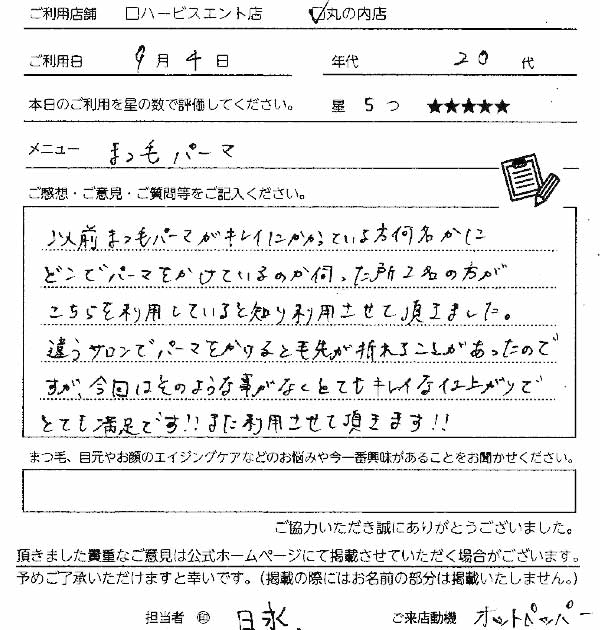 ご利用店舗 □ハービスエント店 ☑丸の内店
ご利用日 9月4日 年代 20代
本日のご利用を星の数で評価してください。 星 5つ ★★★★★
メニュー まつ毛パーマ
ご感想・ご意見・ご質問等をご記入ください。
以前まつ毛パーマがキレイにかかっている方何名かに
どこでパーマをかけているのか伺った所2名の方が
こちらを利用していると知り利用させて頂きました。
違うサロンでパーマをかけると毛先が折れることがあったので
すが、今回はそのような事がなくとてもキレイな仕上がりで
とても満足です!!また利用させて頂きます!!
まつ毛、目元やお顔のエイジングケアなどのお悩みや今一番興味があることをお聞かせください。
ご協力いただき誠にありがとうございました。
頂きました貴重なご意見は公式ホームページにて掲載させていただく場合がございます。
予めご了承いただけますと幸いです。(掲載の際にはお名前の部分は掲載いたしません。)
担当者 ㊞ 日永 ご来店動機 ホットペッパー